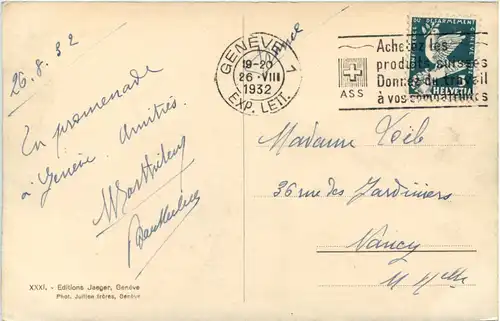 26.8.32
En promenade
à Genève. Amitiés.
XXXI. - Editions Jaeger, Genève
Phot. Jullien frères, Genève
GENÈVE 1
19-20
26·VIII
1932
EXP. LETT.
Achetez les
produits suisses
Donnez du travail
à vos compatriotes
ASS
DU DÉSARMEMENT
HELVETIA
Madame
36 rue des Jardiniers
Nancy
M Mlle